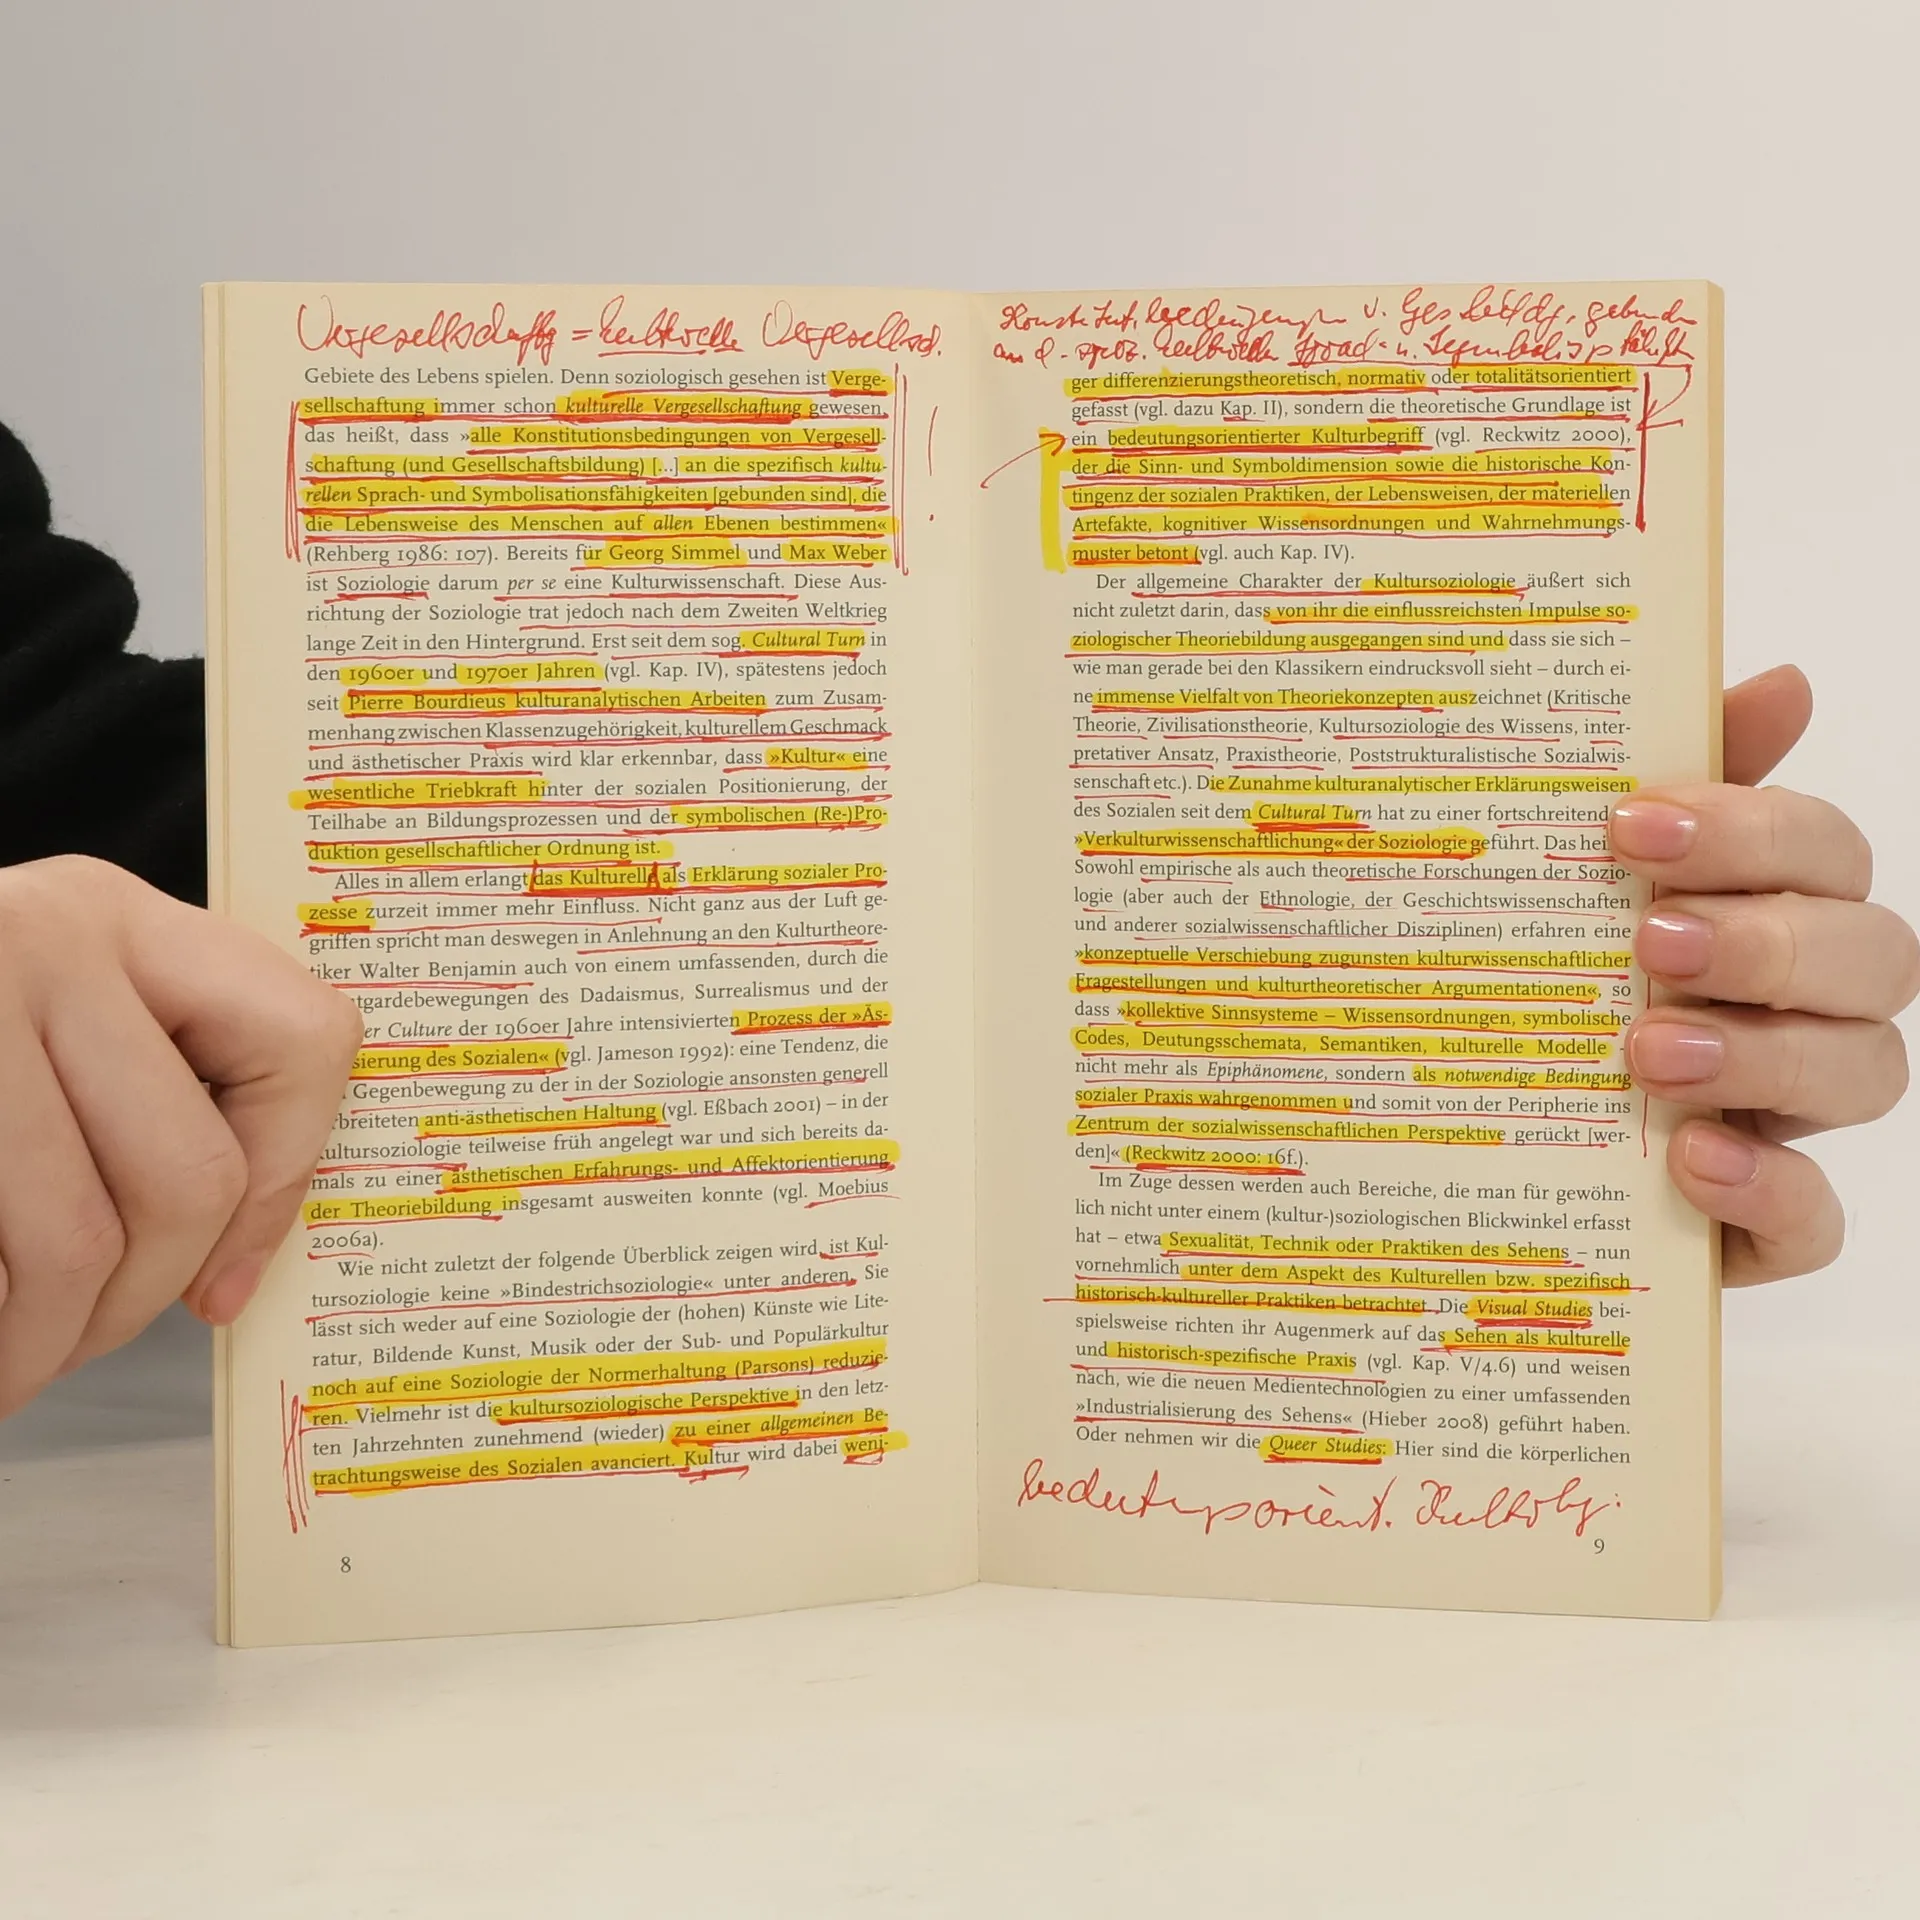 Vergesellschaftg = kulturelle Vergesellsch.
Gebiete des Lebens spielen. Denn soziologisch gesehen ist Verge-
sellschaftung immer schon kulturelle Vergesellschaftung gewesen,
das heißt, dass »alle Konstitutionsbedingungen von Vergesell-
schaftung (und Gesellschaftsbildung) [...] an die spezifisch kultu-
rellen Sprach- und Symbolisationsfähigkeiten [gebunden sind], die
die Lebensweise des Menschen auf allen Ebenen bestimmen«
(Rehberg 1986: 107). Bereits für Georg Simmel und Max Weber
ist Soziologie darum per se eine Kulturwissenschaft. Diese Aus-
richtung der Soziologie trat jedoch nach dem Zweiten Weltkrieg
lange Zeit in den Hintergrund. Erst seit dem sog. Cultural Turn in
den 1960er und 1970er Jahren (vgl. Kap. IV), spätestens jedoch
seit Pierre Bourdieus kulturanalytischen Arbeiten zum Zusam-
menhang zwischen Klassenzugehörigkeit, kulturellem Geschmack
und ästhetischer Praxis wird klar erkennbar, dass »Kultur« eine
wesentliche Triebkraft hinter der sozialen Positionierung, der
Teilhabe an Bildungsprozessen und der symbolischen (Re-)Pro-
duktion gesellschaftlicher Ordnung ist.
Alles in allem erlangt das Kulturelle als Erklärung sozialer Pro-
zesse zurzeit immer mehr Einfluss. Nicht ganz aus der Luft ge-
griffen spricht man deswegen in Anlehnung an den Kulturtheore-
tiker Walter Benjamin auch von einem umfassenden, durch die
tgardebewegungen des Dadaismus, Surrealismus und der
er Culture der 1960er Jahre intensivierten Prozess der »Äs-
sierung des Sozialen« (vgl. Jameson 1992): eine Tendenz, die
Gegenbewegung zu der in der Soziologie ansonsten generell
rbreiteten anti-ästhetischen Haltung (vgl. Eßbach 2001) – in der
ultursoziologie teilweise früh angelegt war und sich bereits da-
mals zu einer ästhetischen Erfahrungs- und Affektorientierung
der Theoriebildung insgesamt ausweiten konnte (vgl. Moebius
2006a).
Wie nicht zuletzt der folgende Überblick zeigen wird, ist Kul-
tursoziologie keine »Bindestrichsoziologie« unter anderen. Sie
lässt sich weder auf eine Soziologie der (hohen) Künste wie Lite-
ratur, Bildende Kunst, Musik oder der Sub- und Populärkultur
noch auf eine Soziologie der Normerhaltung (Parsons) reduzie-
ren. Vielmehr ist die kultursoziologische Perspektive in den letz-
ten Jahrzehnten zunehmend (wieder) zu einer allgemeinen Be-
trachtungsweise des Sozialen avanciert. Kultur wird dabei weni-
8
gebunden
an d. kulturellen
ger differenzierungstheoretisch, normativ oder totalitätsorientiert
gefasst (vgl. dazu Kap. II), sondern die theoretische Grundlage ist
ein bedeutungsorientierter Kulturbegriff (vgl. Reckwitz 2000),
der die Sinn- und Symboldimension sowie die historische Kon-
tingenz der sozialen Praktiken, der Lebensweisen, der materiellen
Artefakte, kognitiver Wissensordnungen und Wahrnehmungs-
muster betont (vgl. auch Kap. IV).
Der allgemeine Charakter der Kultursoziologie äußert sich
nicht zuletzt darin, dass von ihr die einflussreichsten Impulse so-
ziologischer Theoriebildung ausgegangen sind und dass sie sich –
wie man gerade bei den Klassikern eindrucksvoll sieht – durch ei-
ne immense Vielfalt von Theoriekonzepten auszeichnet (Kritische
Theorie, Zivilisationstheorie, Kultursoziologie des Wissens, inter-
pretativer Ansatz, Praxistheorie, Poststrukturalistische Sozialwis-
senschaft etc.). Die Zunahme kulturanalytischer Erklärungsweisen
des Sozialen seit dem Cultural Turn hat zu einer fortschreitend
»Verkulturwissenschaftlichung« der Soziologie geführt. Das hei
Sowohl empirische als auch theoretische Forschungen der Sozio-
logie (aber auch der Ethnologie, der Geschichtswissenschaften
und anderer sozialwissenschaftlicher Disziplinen) erfahren eine
»konzeptuelle Verschiebung zugunsten kulturwissenschaftlicher
Fragestellungen und kulturtheoretischer Argumentationen«, so
dass »kollektive Sinnsysteme – Wissensordnungen, symbolische
Codes, Deutungsschemata, Semantiken, kulturelle Modelle -
nicht mehr als Epiphänomene, sondern als notwendige Bedingung
sozialer Praxis wahrgenommen und somit von der Peripherie ins
Zentrum der sozialwissenschaftlichen Perspektive gerückt [wer-
den]« (Reckwitz 2000: 16f.).
Im Zuge dessen werden auch Bereiche, die man für gewöhn-
lich nicht unter einem (kultur-)soziologischen Blickwinkel erfasst
hat – etwa Sexualität, Technik oder Praktiken des Sehens – nun
vornehmlich unter dem Aspekt des Kulturellen bzw. spezifisch
historisch-kultureller Praktiken betrachtet. Die Visual Studies bei-
spielsweise richten ihr Augenmerk auf das Sehen als kulturelle
und historisch-spezifische Praxis (vgl. Kap. V/4.6) und weisen
nach, wie die neuen Medientechnologien zu einer umfassenden
»Industrialisierung des Sehens« (Hieber 2008) geführt haben.
Oder nehmen wir die Queer Studies: Hier sind die körperlichen
bedeutungsorient. Kulturbg.
9